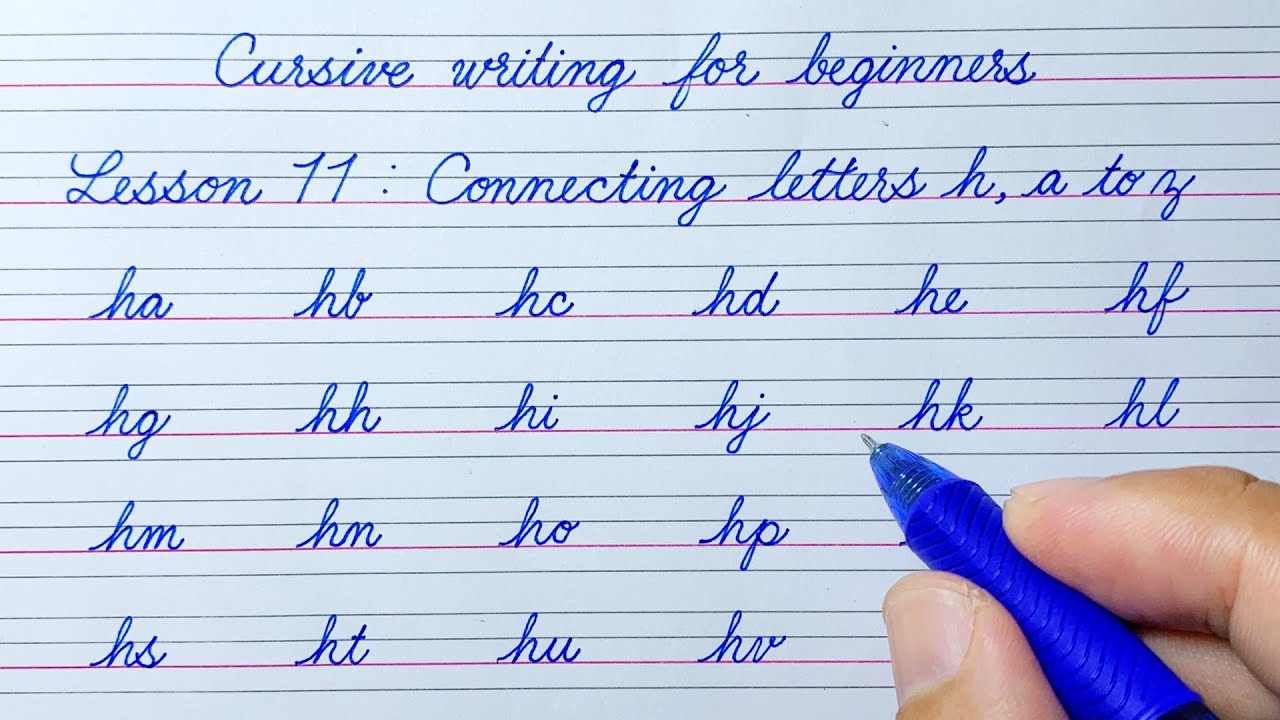 Cursive writing for beginners
Lesson 11 : Connecting letters h, a to z
ha hb hc hd he hf
hg hh hi hj hk hl
hm hn ho hp
hs ht hu hv